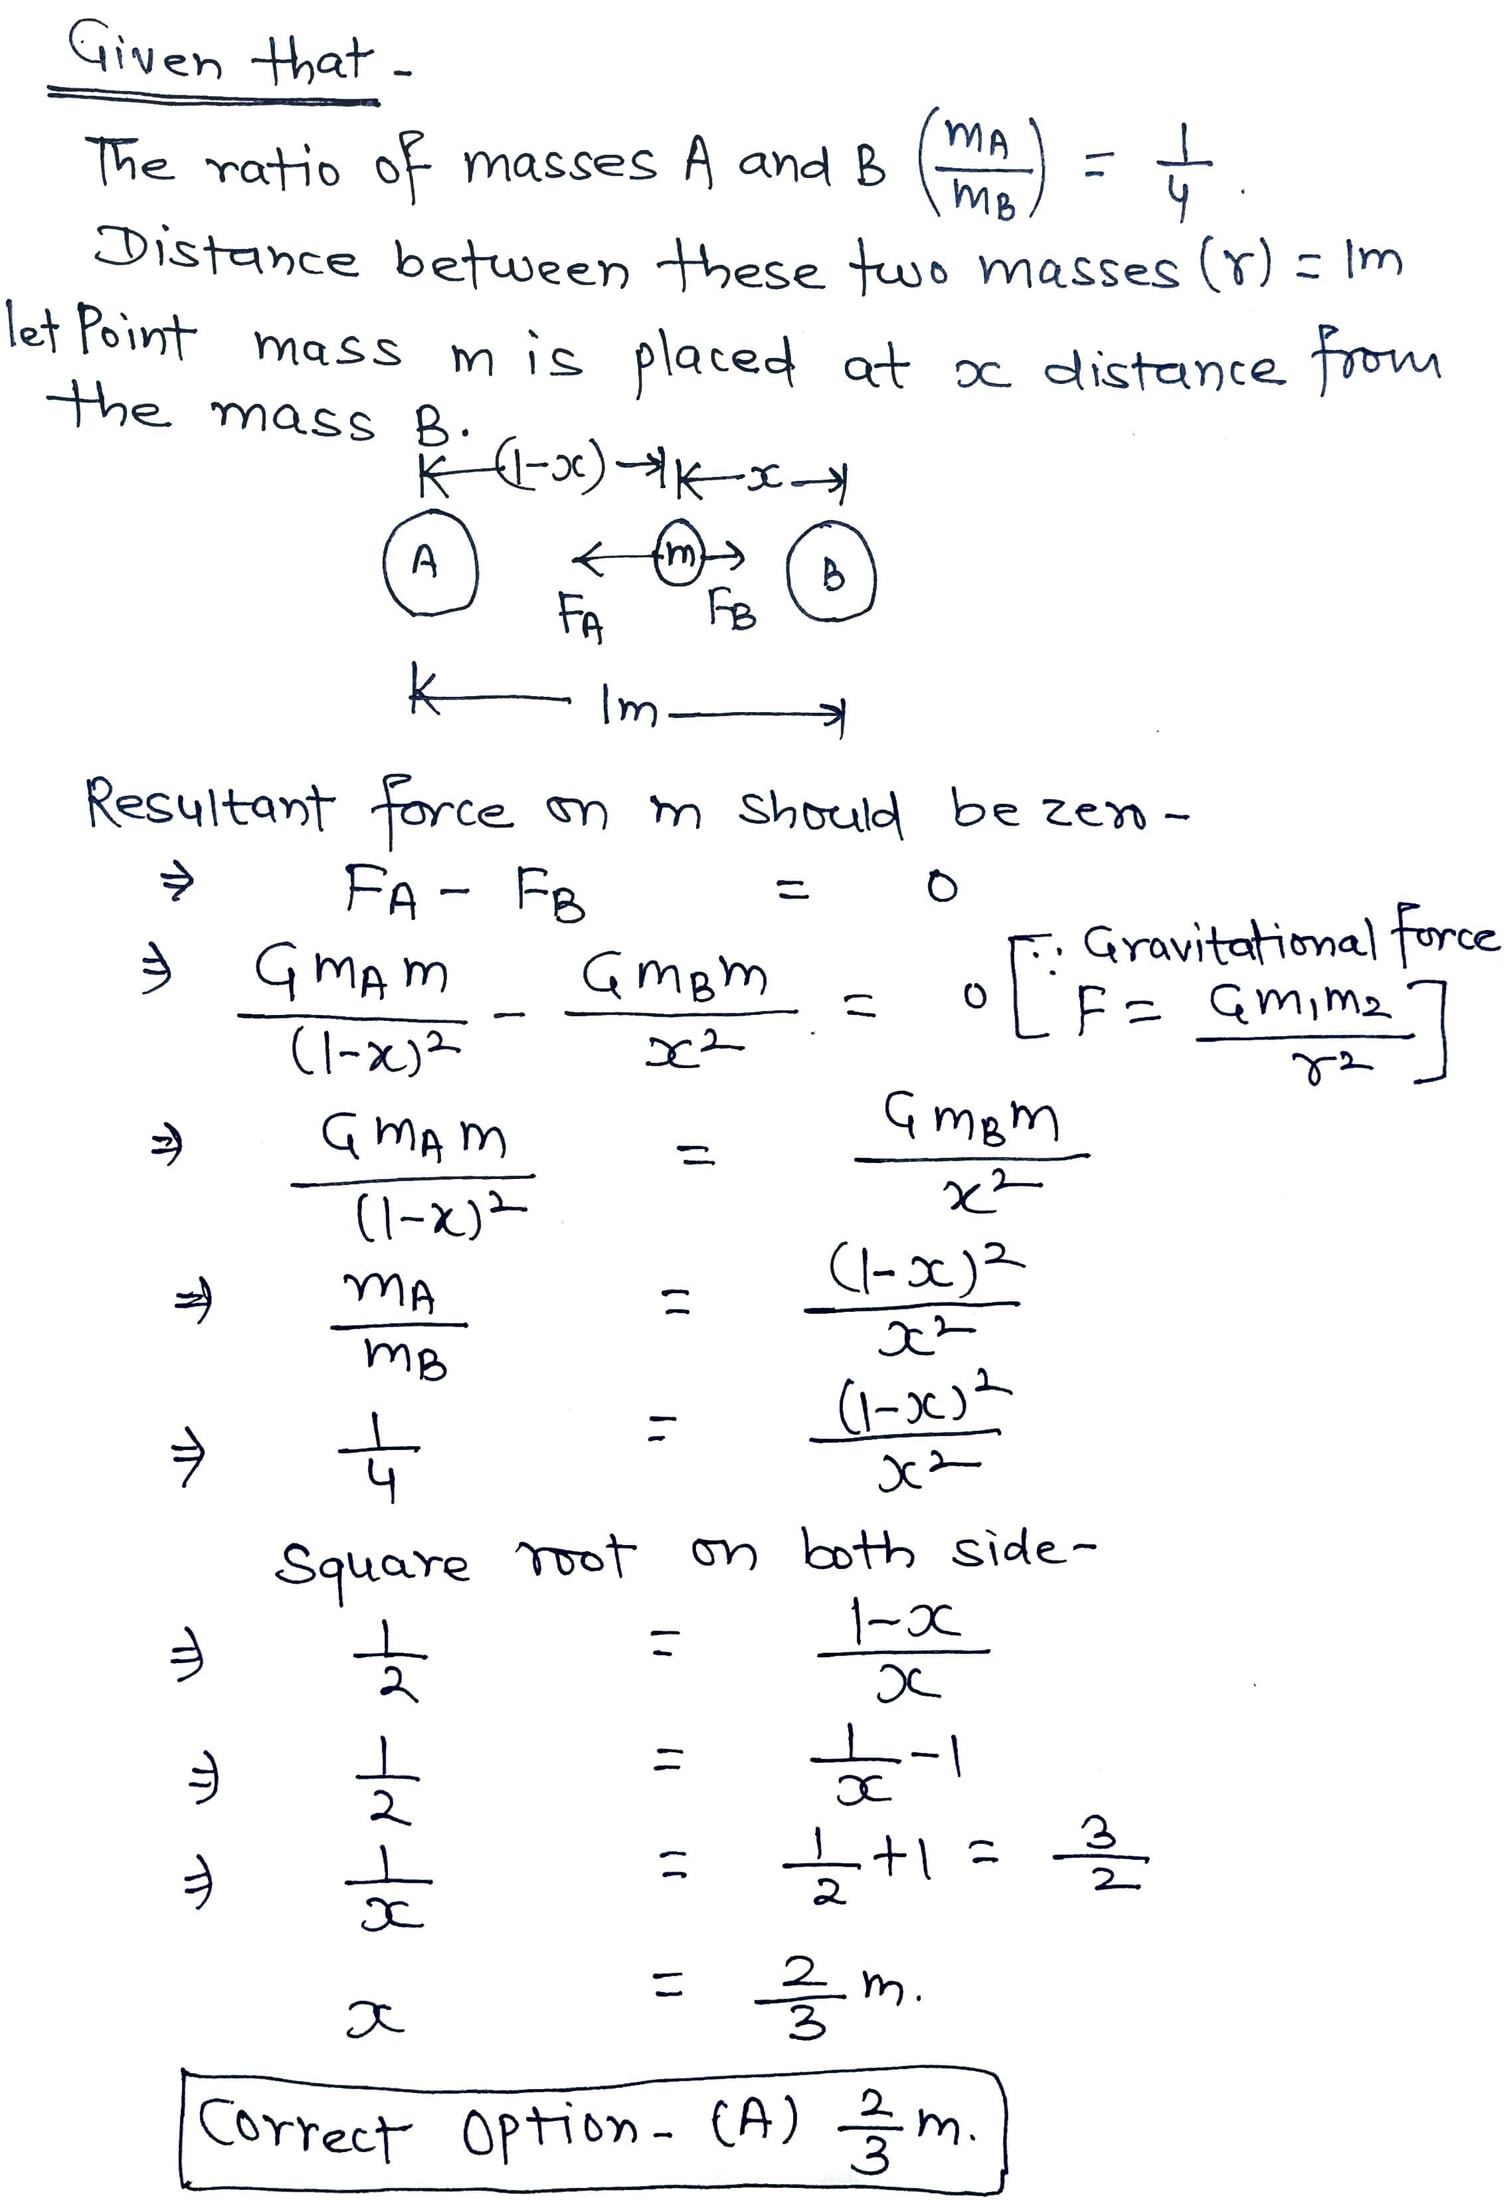 Given that -
The ratio of masses A and B (mA/mB) = 1/4.
Distance between these two masses (r) = 1m
let Point mass m is placed at x distance from
the mass B.
(1-x) x
A m B
FA FB
1m
Resultant force on m should be zero -
⇒ FA - FB = 0
⇒ GmAm/(1-x)² - GmBm/x² = 0 [∵ Gravitational force F = Gm1m2/r²]
⇒ GmAm/(1-x)² = GmBm/x²
⇒ mA/mB = (1-x)²/x²
⇒ 1/4 = (1-x)²/x²
Square root on both side-
⇒ 1/2 = 1-x/x
⇒ 1/2 = 1/x - 1
⇒ 1/x = 1/2 + 1 = 3/2
x = 2/3 m.
Correct Option - (A) 2/3 m.